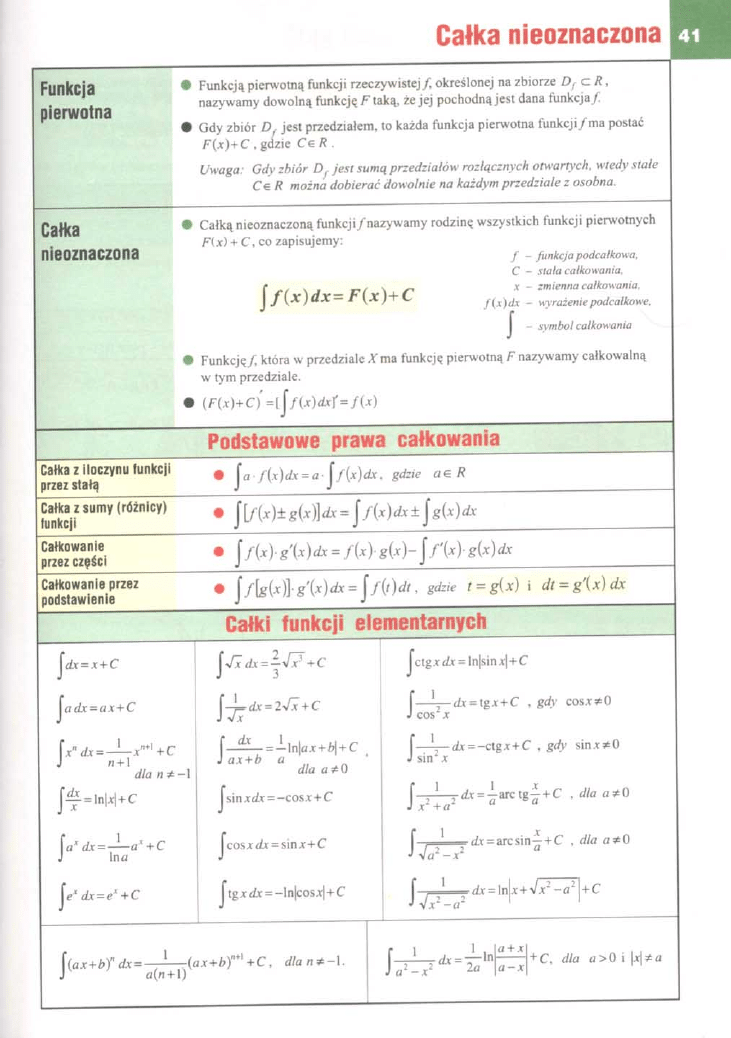 Całka nieoznaczona 41
Funkcja
pierwotna
• Funkcją pierwotną funkcji rzeczywistej f, określonej na zbiorze D_f ⊂ R,
nazywamy dowolną funkcję F taką, że jej pochodną jest dana funkcja f.
• Gdy zbiór D_f jest przedziałem, to każda funkcja pierwotna funkcji f ma postać
F(x)+C , gdzie C∈R .
Uwaga: Gdy zbiór D_f jest sumą przedziałów rozłącznych otwartych, wtedy stałe
C∈R można dobierać dowolnie na każdym przedziale z osobna.
Całka
nieoznaczona
• Całką nieoznaczoną funkcji f nazywamy rodzinę wszystkich funkcji pierwotnych
F(x) + C, co zapisujemy:
∫f(x)dx = F(x)+C
f – funkcja podcałkowa,
C – stała całkowania,
x – zmienna całkowania,
f(x)dx – wyrażenie podcałkowe,
∫ – symbol całkowania
• Funkcję f, która w przedziale X ma funkcję pierwotną F nazywamy całkowalną
w tym przedziale.
• (F(x)+C)' =[∫f(x)dx]'= f(x)
Podstawowe prawa całkowania
Całka z iloczynu funkcji
przez stałą
• ∫a·f(x)dx = a·∫f(x)dx, gdzie a∈R
Całka z sumy (różnicy)
funkcji
• ∫[f(x)±g(x)]dx = ∫f(x)dx ± ∫g(x)dx
Całkowanie
przez części
• ∫f(x)·g'(x)dx = f(x)·g(x)−∫f'(x)·g(x)dx
Całkowanie przez
podstawienie
• ∫f[g(x)]·g'(x)dx = ∫f(t)dt, gdzie t = g(x) i dt = g'(x)dx
Całki funkcji elementarnych
∫dx = x+C
∫a dx = ax+C
∫xⁿ dx = 1/(n+1) xⁿ⁺¹ +C
dla n ≠ −1
∫dx/x = ln|x|+C
∫aˣ dx = 1/(ln a) aˣ +C
∫eˣ dx = eˣ +C
∫√x dx = 2/3 √x³ +C
∫1/√x dx = 2√x +C
∫dx/(ax+b) = 1/a ln|ax+b|+C ,
dla a≠0
∫sin x dx = −cos x+C
∫cos x dx = sin x+C
∫tg x dx = −ln|cos x|+C
∫ctg x dx = ln|sin x|+C
∫1/(cos²x) dx = tg x+C , gdy cos x≠0
∫1/(sin²x) dx = −ctg x+C , gdy sin x≠0
∫1/(x²+a²) dx = 1/a arc tg x/a +C , dla a≠0
∫1/√(a²−x²) dx = arc sin x/a +C , dla a≠0
∫1/√(x²−a²) dx = ln|x+√(x²−a²)|+C
∫(ax+b)ⁿ dx = 1/(a(n+1)) (ax+b)ⁿ⁺¹ +C, dla n≠−1.
∫1/(a²−x²) dx = 1/(2a) ln|(a+x)/(a−x)|+C, dla a>0 i |x|≠a